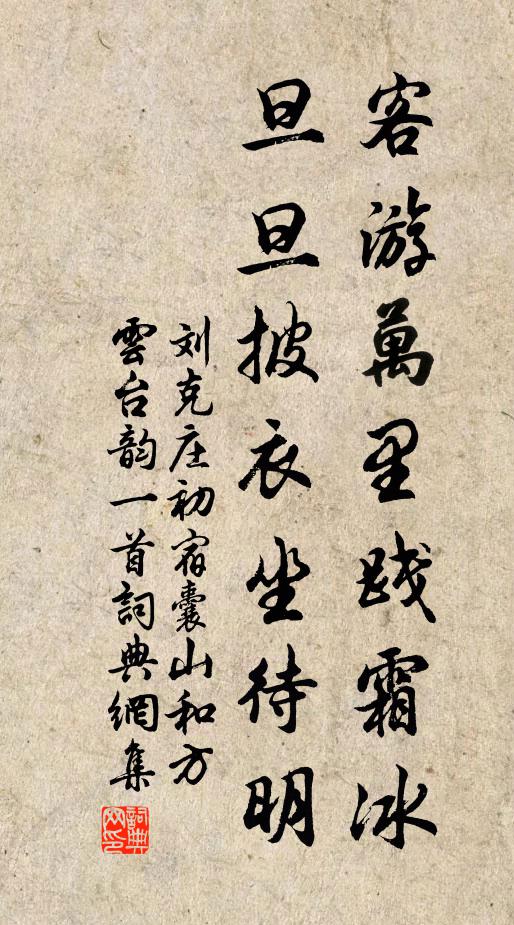 客游萬里踐霜冰
旦旦披衣坐待明
刘克庄初宿囊山和方
雲台韵一首詞典網集
詞典網印